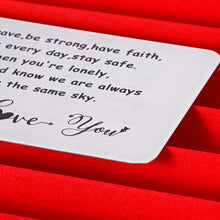 ave, be strong, have faith,
every day, stay safe.
en you're lonely,
d know we are always
the same sky.
Love You